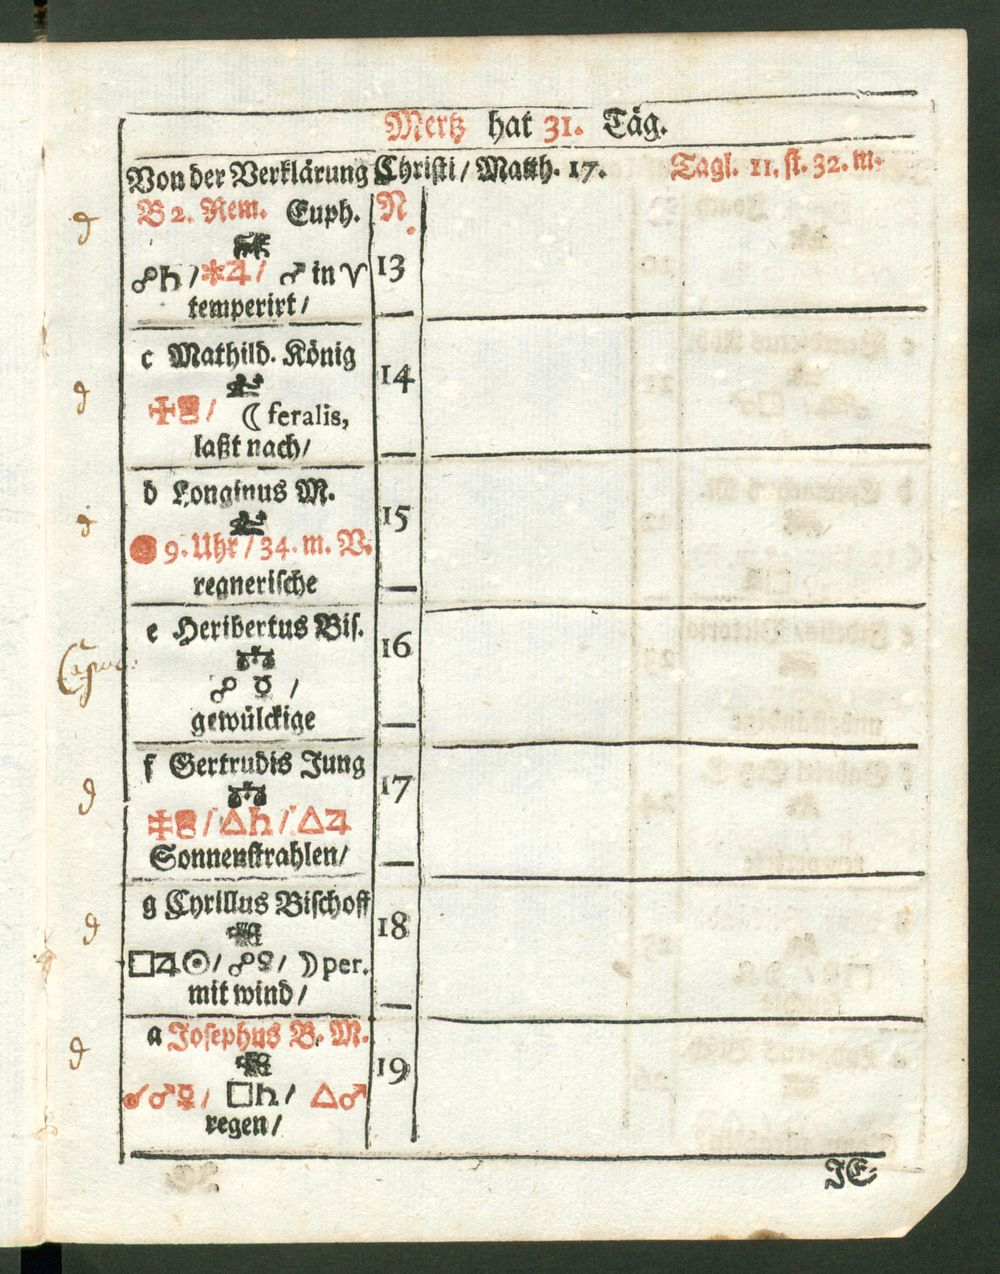 Mertz hat 31. Täg.
Von der Verklärung Christi / Matth. 17. Tagl. 11. st. 32. m.
B 2. Rem. Euph. N.
☍♄ / ✱♃ / ♂ in ♈ 13
temperirt /
c Mathild. König
14
☾ feralis,
laßt nach /
d Longinus M.
15
9. Uhr / 34. m. V.
regnerische
e Heribertus Bis.
16
☍ ☿ /
gewülckige
f Gertrudis Jung
17
/ △♄ / △♃
Sonnenstrahlen /
g Cyrillus Bischoff
18
□♃☉ / ☍♀ / ☽ per.
mit wind /
a Josephus B. M.
19
☌♂☿ / □♄ / △♂
regen /
JE-